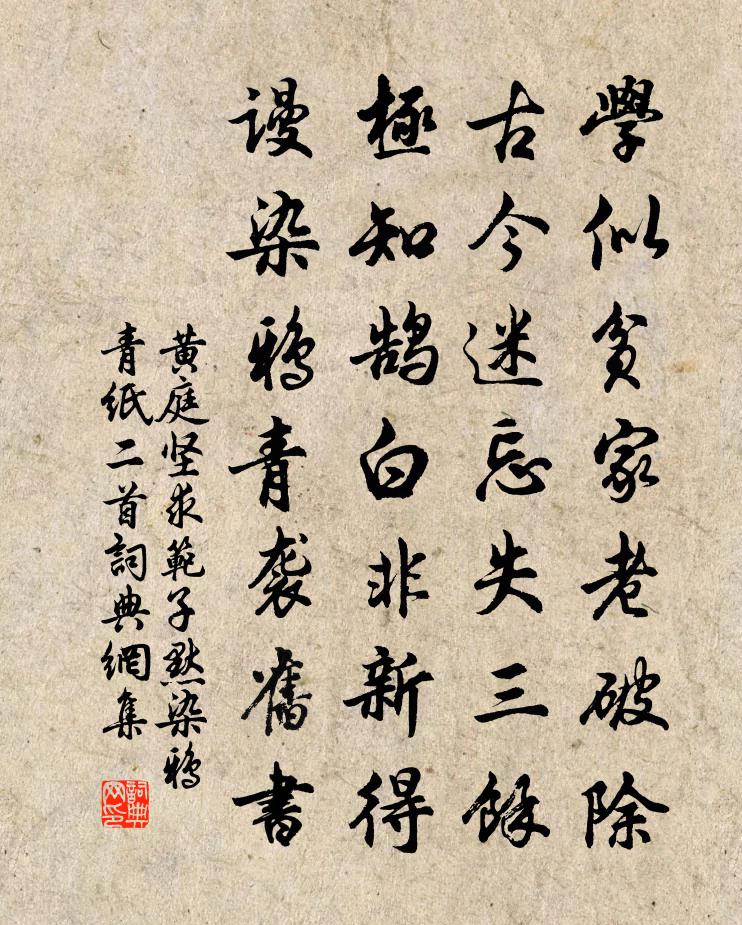 學似貧家老破除
古今迷忘失三餘
極知鵠白非新得
謾染鴉青袭舊書
黄庭坚求範子默染鴉
青纸二首詞典網集
詞典网印